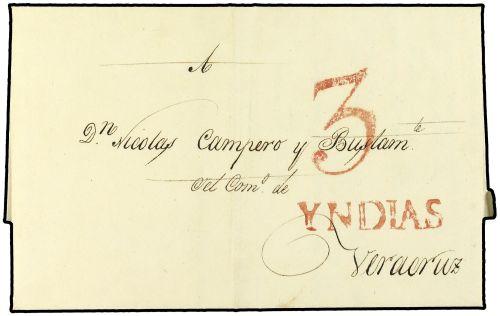 A
3
D.n Nicolas Campero y Bustam.te
del Com.o de
YNDIAS
Veracruz